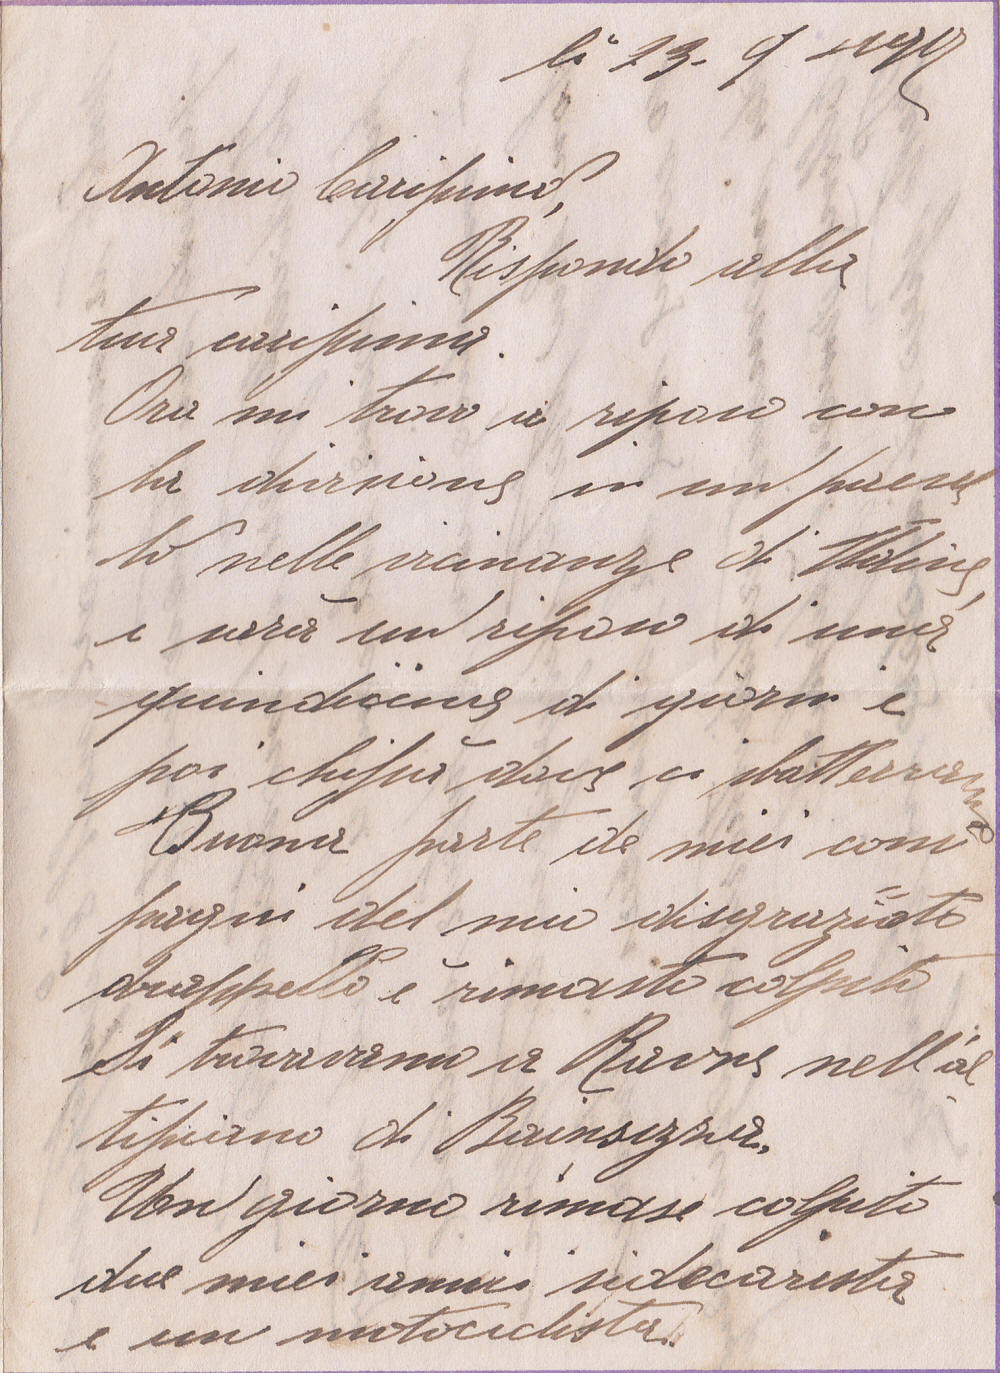 li 23-9 1917
Antonio Carissimo,
Rispondo alla
tua carissima.
Ora mi trovo a riposo con
la divisione in un' paesel
lo nelle vicinanze di Udine,
e sarà un' riposo di una
quindicina di giorni e
poi chissà dove ci sbatterrano
Buona parte de miei com
pagni del mio disgraziato
drappello è rimasto colpito
Si trovavamo a Ravne nell'al
tipiano di Bainsizza.
Un' giorno rimase colpito
due miei amici sidecarista
e un motociclista.